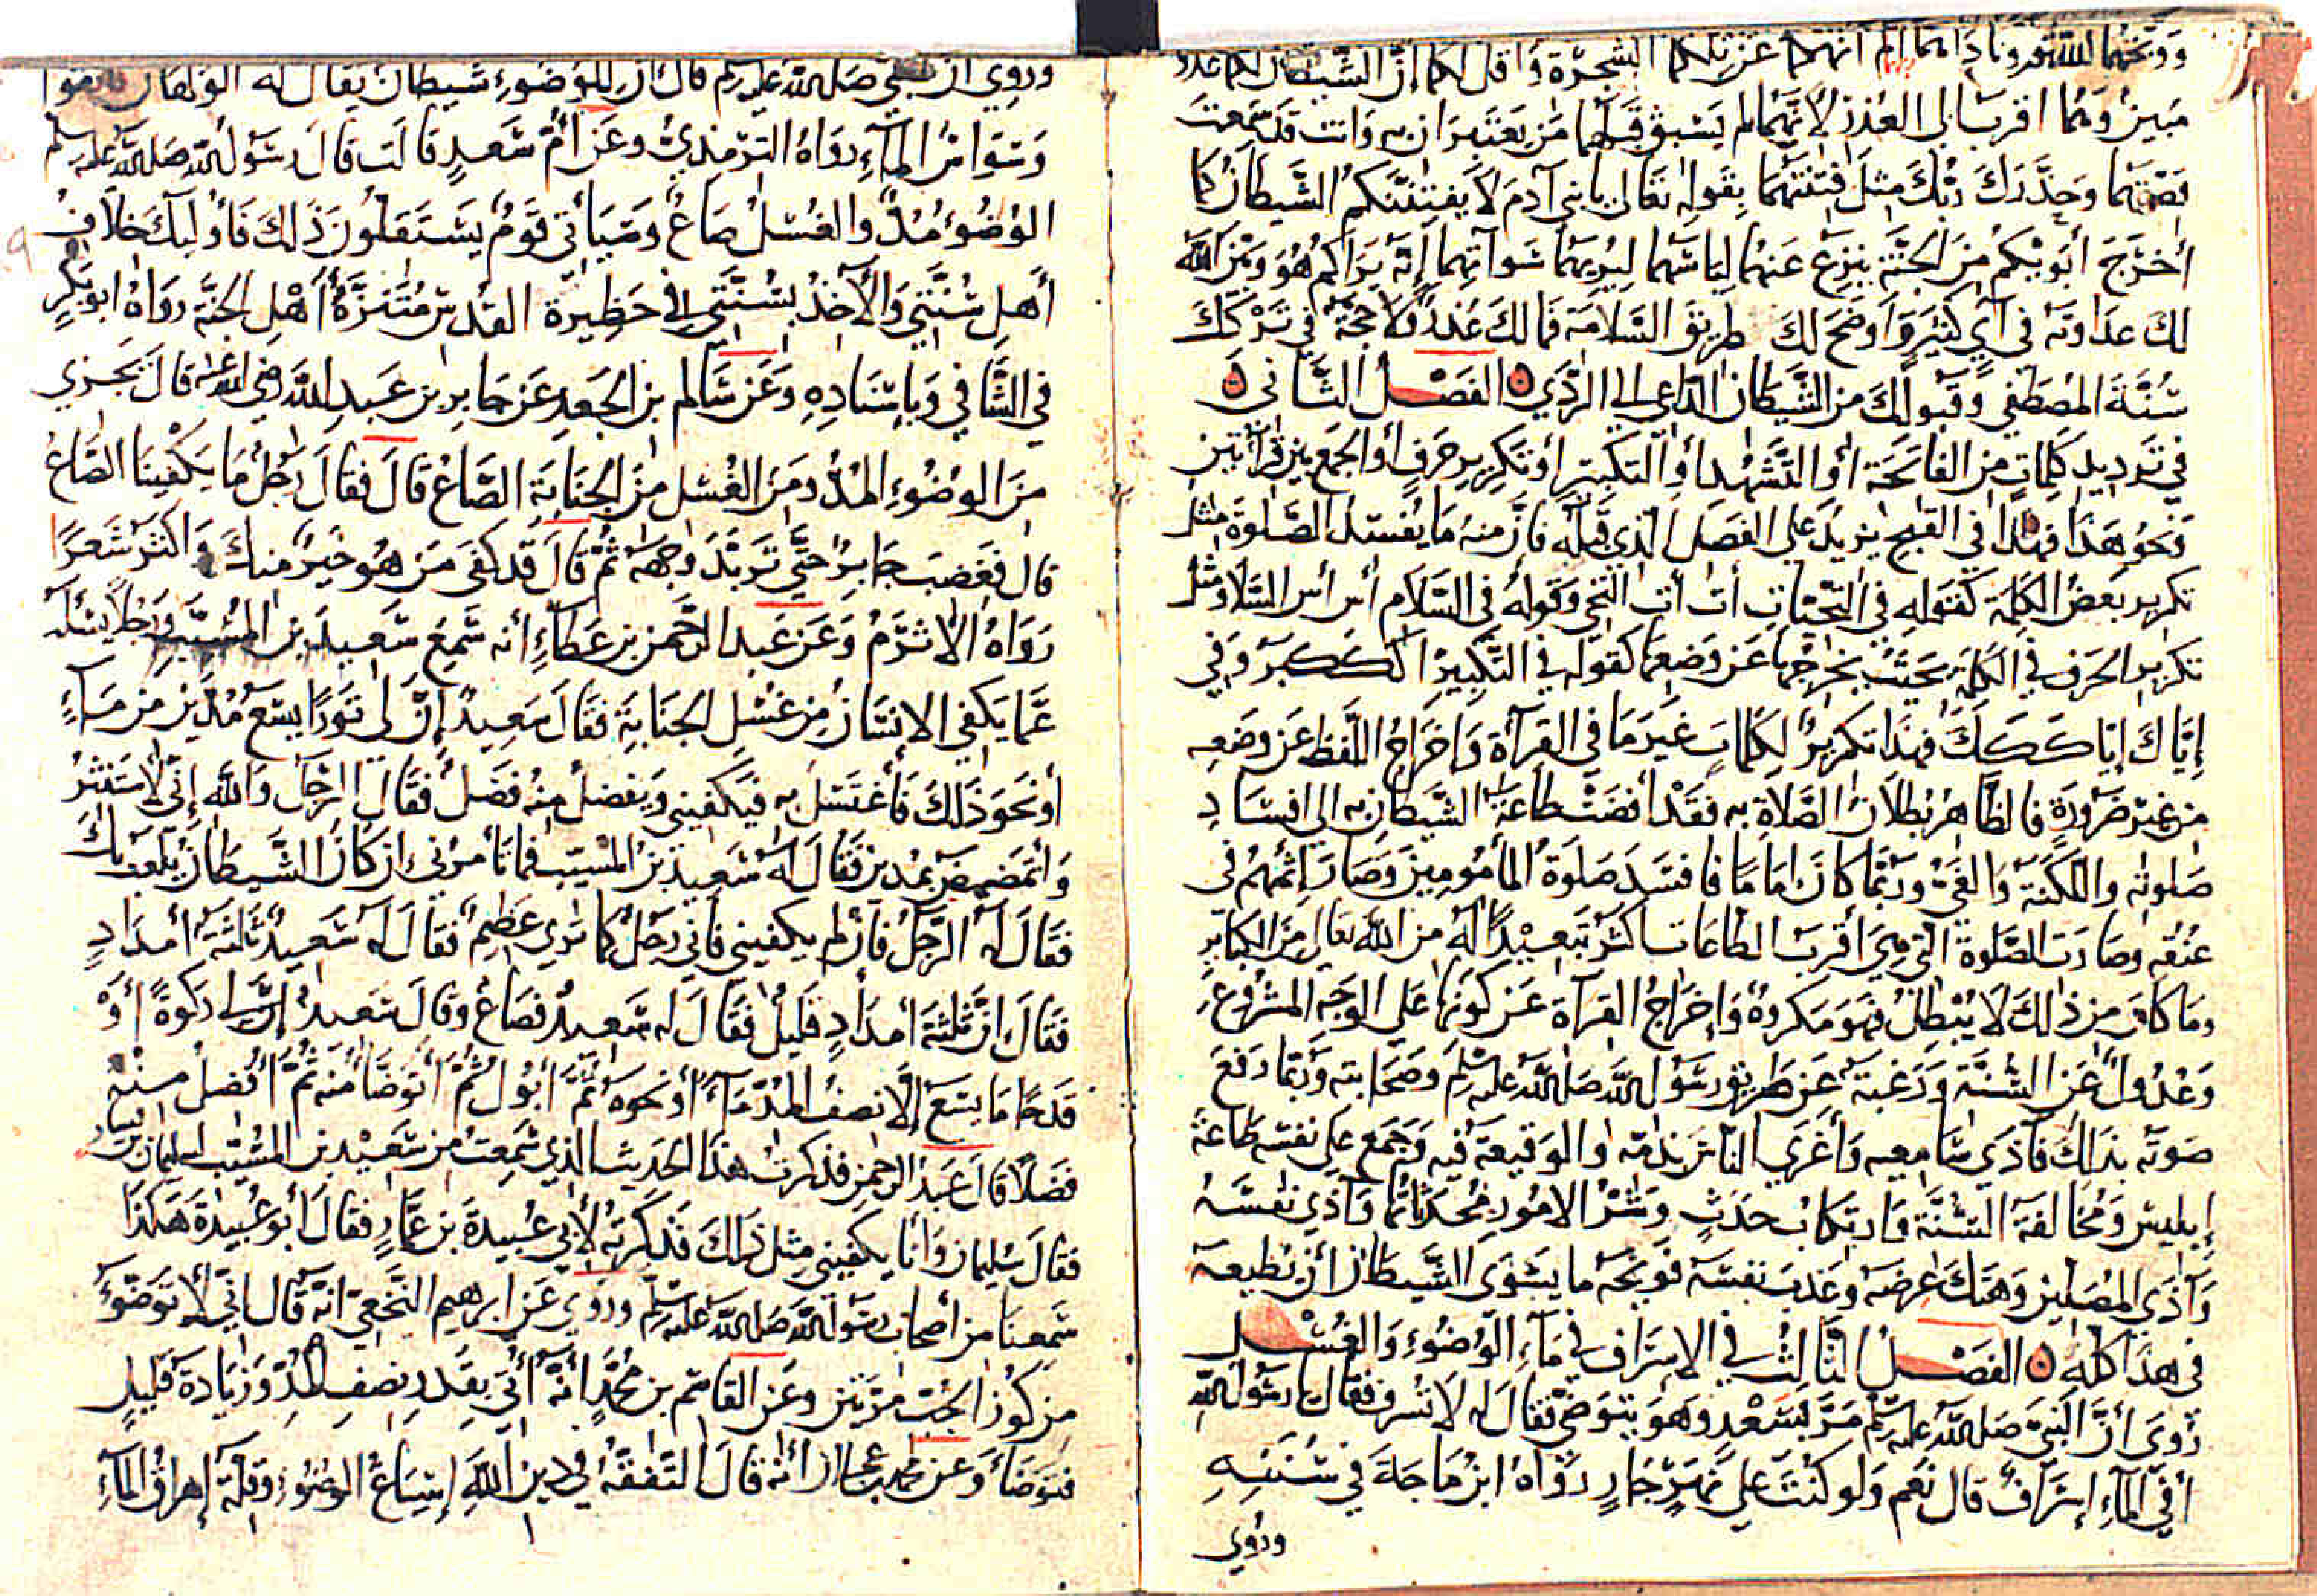 ووبخهما الله تعالى وناداهما ألم أنهكما عن تلكما الشجرة وأقل لكما إن الشيطان لكما عدو
مبين وهما اقرب الى العذر لأنهما لم يسبق قبلهما من يعتبران به وانت قد سمعت
قصتهما وحذرك ربك مثل فتنتهما بقوله تعالى يا بني آدم لا يفتننكم الشيطان كما
أخرج أبويكم من الجنة ينزع عنهما لباسهما ليريهما سوآتهما إنه يراكم هو وبين الله
لك عداوته في آي كثيرة وأوضح لك طريق السلامة فما لك عذر ولا حجة في تركك
سنة المصطفى وقبولك من الشيطان الداعي الى الردي ن الفصل الثاني ن
في ترديد كلمات من الفاتحة أو التشهد أو التكبير أو تكرير حرف أو الجمع بين قرآتين
ونحو هذا فهذا في القبح يزيد على الفصل الذي قبله فان منه ما يفسد الصلوة مثل
تكرير بعض الكلمة كقوله في التحيات أت أت التحي وقوله في السلام أس أس السلام ومثل
تكرير الحرف في الكلمة بحيث يخرجها عن وضعها كقوله في التكبير اكككبر وفي
إياك إياكككك فهذا تكرير لكلمات غير ما في القرآة واخراج اللفظ عن وضعه
من غير ضرورة فالظاهر بطلان الصلاة به فقد أفضت طاعة الشيطان به الى افساد
صلوته واللكنة والغي وربما كان إماما فافسد صلوة المأمومين وصار إثمهم في
عنقه وصارت الصلوة التي هي أقرب الطاعات اكثر تبعيدا له من الله تعالى من الكبائر
وما كان من ذلك لا يبطل فهو مكروه وإخراج القرآة عن كونها على الوجه المشروع
وعدول عن السنة ورغبة عن طريق رسول الله صلى الله عليه وسلم وصحابته وربما رفع
صوته بذلك فآذى سامعيه وأغرى الناس بذمه والوقيعة فيه وجمع على نفسه طاعة
إبليس ومخالفة السنة وارتكاب حدث وشر الامور محدثاتها وآذى نفسه
وآذى المصلين وهتك عرضه وعذب نفسه فويحه ما يسوى الشيطان أن نطيعه
في هذا كله ن الفصل الثالث في الاسراف في ماء الوضوء والغسل
روي أن النبي صلى الله عليه وسلم مر بسعد وهو يتوضئ فقال له لا تسرف فقال يا رسول الله
أفي الماء إسراف قال نعم ولو كنت على نهر جار رواه ابن ماجة في سننه
وروي
وروي ان النبي صلى الله عليه وسلم قال ان للوضوء شيطان يقال له الولهان فاتقوا
وسواس الماء رواه الترمذي وعن أم سعد قالت قال رسول الله صلى الله عليه وسلم
الوضوء مد والغسل صاع وسيأتي قوم يستقلون ذلك فأولئك خلاف
أهل سنتي والآخذ بسنتي في حظيرة القدس متنزه أهل الجنة رواه ابو بكر
في الشافي وباسناده وعن سالم بن الجعد عن جابر بن عبد الله رضي الله عنه قال تجزي
من الوضوء المد ومن الغسل من الجنابة الصاع قال فقال رجل ما يكفينا الصاع
قال فغضب جابر حتى تربد وجهه ثم قال قد كفى من هو خير منك واكثر شعرا
رواه الاثرم وعن عبد الرحمن بن عطاء أنه سمع سعيد بن المسيب ورجلا يسئله
عما يكفي الانسان من غسل الجنابة فقال سعيد إن لي تورا يسع مدين من ماء
أو نحو ذلك فأغتسل به فيكفيني ويفضل منه فضل فقال الرجل والله إني لأستنثر
وأتمضمض بمدين فقال له سعيد بن المسيب فما تأمرني ان كان الشيطان يلعب بك
فقال له الرجل فان لم يكفيني فاني رجل كما ترى عظيم فقال له سعيد ثلثة أمداد
فقال ان ثلثة أمداد قليل فقال له سعيد فصاع وقال سعيد إن لي ركوة أو
قدحا ما يسع إلا نصف المد ماء أو نحوه ثم أبول ثم أتوضأ منه ثم أفضل منه
فضلا قال عبد الرحمن فذكرت هذا الحديث الذي سمعت من سعيد بن المسيب لسليمان بن يسار
فقال سليمان وأنا يكفيني مثل ذلك فذكرته لأبي عبيدة بن عمار فقال أبو عبيدة هكذا
سمعنا من أصحاب رسول الله صلى الله عليه وسلم وروي عن ابرهيم النخعي انه قال اني لأتوضؤ
من كوز الحب مرتين وعن القاسم بن محمد أنه أتي بقدر نصف المد وزيادة قليل
فتوضأ وعن محمد بن عجلان أنه قال التفقه في دين الله إسباغ الوضوء وقلة إهراق الماء